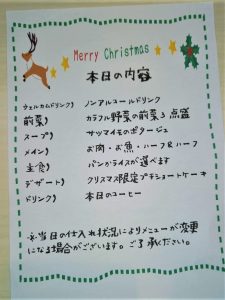 Merry Christmas
本日の内容
ウェルカムドリンク) ノンアルコールドリンク
前菜) カラフル野菜の前菜3点盛
スープ) サツマイモのポタージュ
メイン) お肉・お魚・ハーフ&ハーフ
主食) パンかライスが選べます
デザート) クリスマス限定プチショートケーキ
ドリンク) 本日のコーヒー
※当日の仕入れ状況によりメニューが変更
になる場合がございます。ご了承ください。